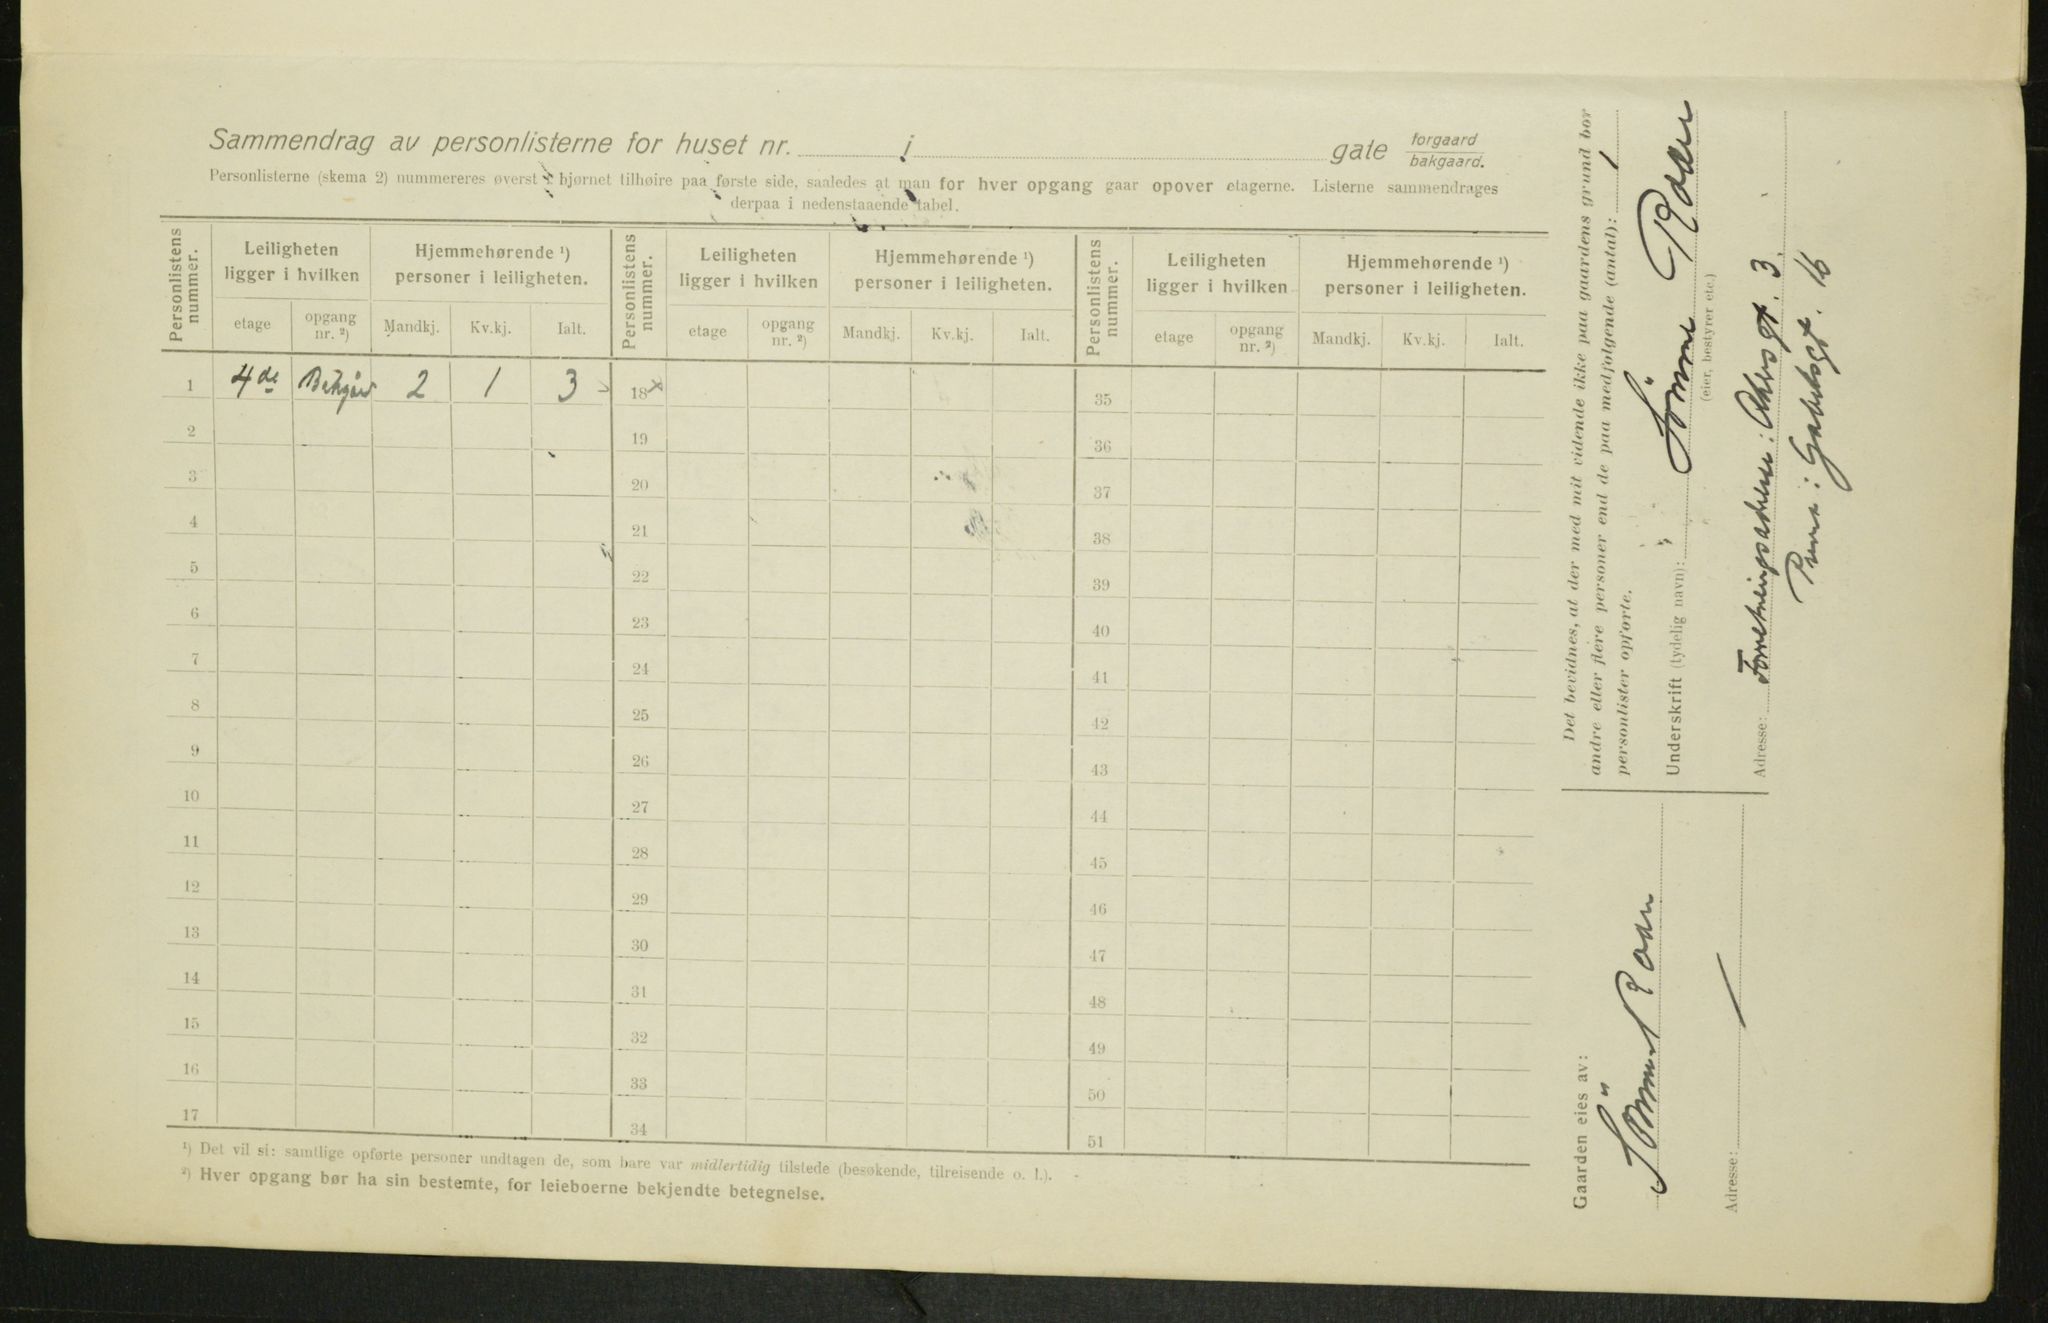 Sammendrag av personlisterne for huset nr. i gate forgaard bakgaard.
Personlisterne (skema 2) nummereres øverst i hjørnet tilhøire paa første side, saaledes at man for hver opgang gaar opover etagerne. Listerne sammendrages
derpaa i nedenstaaende tabel.
Personlistens nummer. Leiligheten ligger i hvilken Hjemmehørende ¹) personer i leiligheten. Personlistens nummer. Leiligheten ligger i hvilken Hjemmehørende ¹) personer i leiligheten. Personlistens nummer. Leiligheten ligger i hvilken Hjemmehørende ¹) personer i leiligheten.
etage opgang nr. ²) Mandkj. Kv.kj. Ialt. etage opgang nr. ²) Mandkj. Kv.kj. Ialt. etage opgang nr. ²) Mandkj. Kv.kj. Ialt.
1 4de Bakgård 2 1 3 18 35
2 19 36
3 20 37
4 21 38
5 22 39
6 23 40
7 24 41
8 25 42
9 26 43
10 27 44
11 28 45
12 29 46
13 30 47
14 31 48
15 32 49
16 33 50
17 34 51
¹) Det vil si: samtlige opførte personer undtagen de, som bare var midlertidig tilstede (besøkende, tilreisende o. l.).
²) Hver opgang bør ha sin bestemte, for leieboerne bekjendte betegnelse.
Det bevidnes, at der med mit vidende ikke paa gaardens grund bor
andre eller flere personer end de paa medfølgende (antal): 1
personlister opførte.
Underskrift (tydelig navn):
(eier, bestyrer etc.)
Adresse: Forretningsadresse: Akersgt. 3.
Gabelsgt. 16
Gaarden eies av:
Adresse: